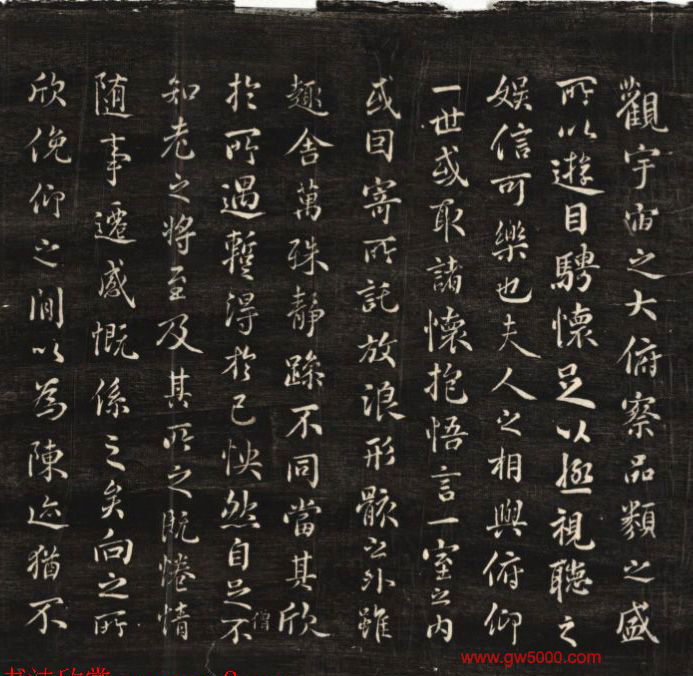 觀宇宙之大俯察品類之盛
所以遊目騁懷足以極視聽之
娛信可樂也夫人之相與俯仰
一世或取諸懷抱悟言一室之內
或因寄所託放浪形骸之外雖
趣舍萬殊靜躁不同當其欣
僧
於所遇暫得於己怏然自足不
知老之將至及其所之既惓情
隨事遷感慨係之矣向之所
欣俛仰之間以為陳迹猶不
www.gw5000.com